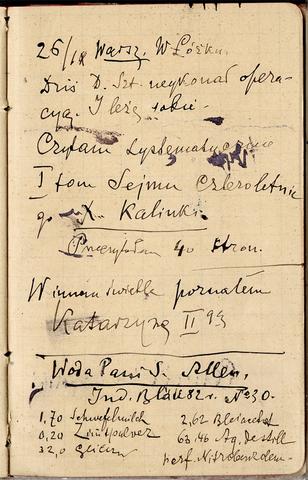 26/IX Warsz. W Łóżku
Dziś D. Szt. wykonał opera-
cyę. I leżę sobie.
Czytam systematycznie
I tom Sejmu Czteroletnie
go X. Kalinki.
Przeczytałem 40 stron.
W innem świetle poznałem
Katarzynę II gą
Woda Pani S. Allen.
Ind. Blätt 82 r. No 30.
1,70 Schwefelmilch 2,62 Bleiacet
0,20 Zinkpulver 63,46 Aq. destill
32,0 Glicer.